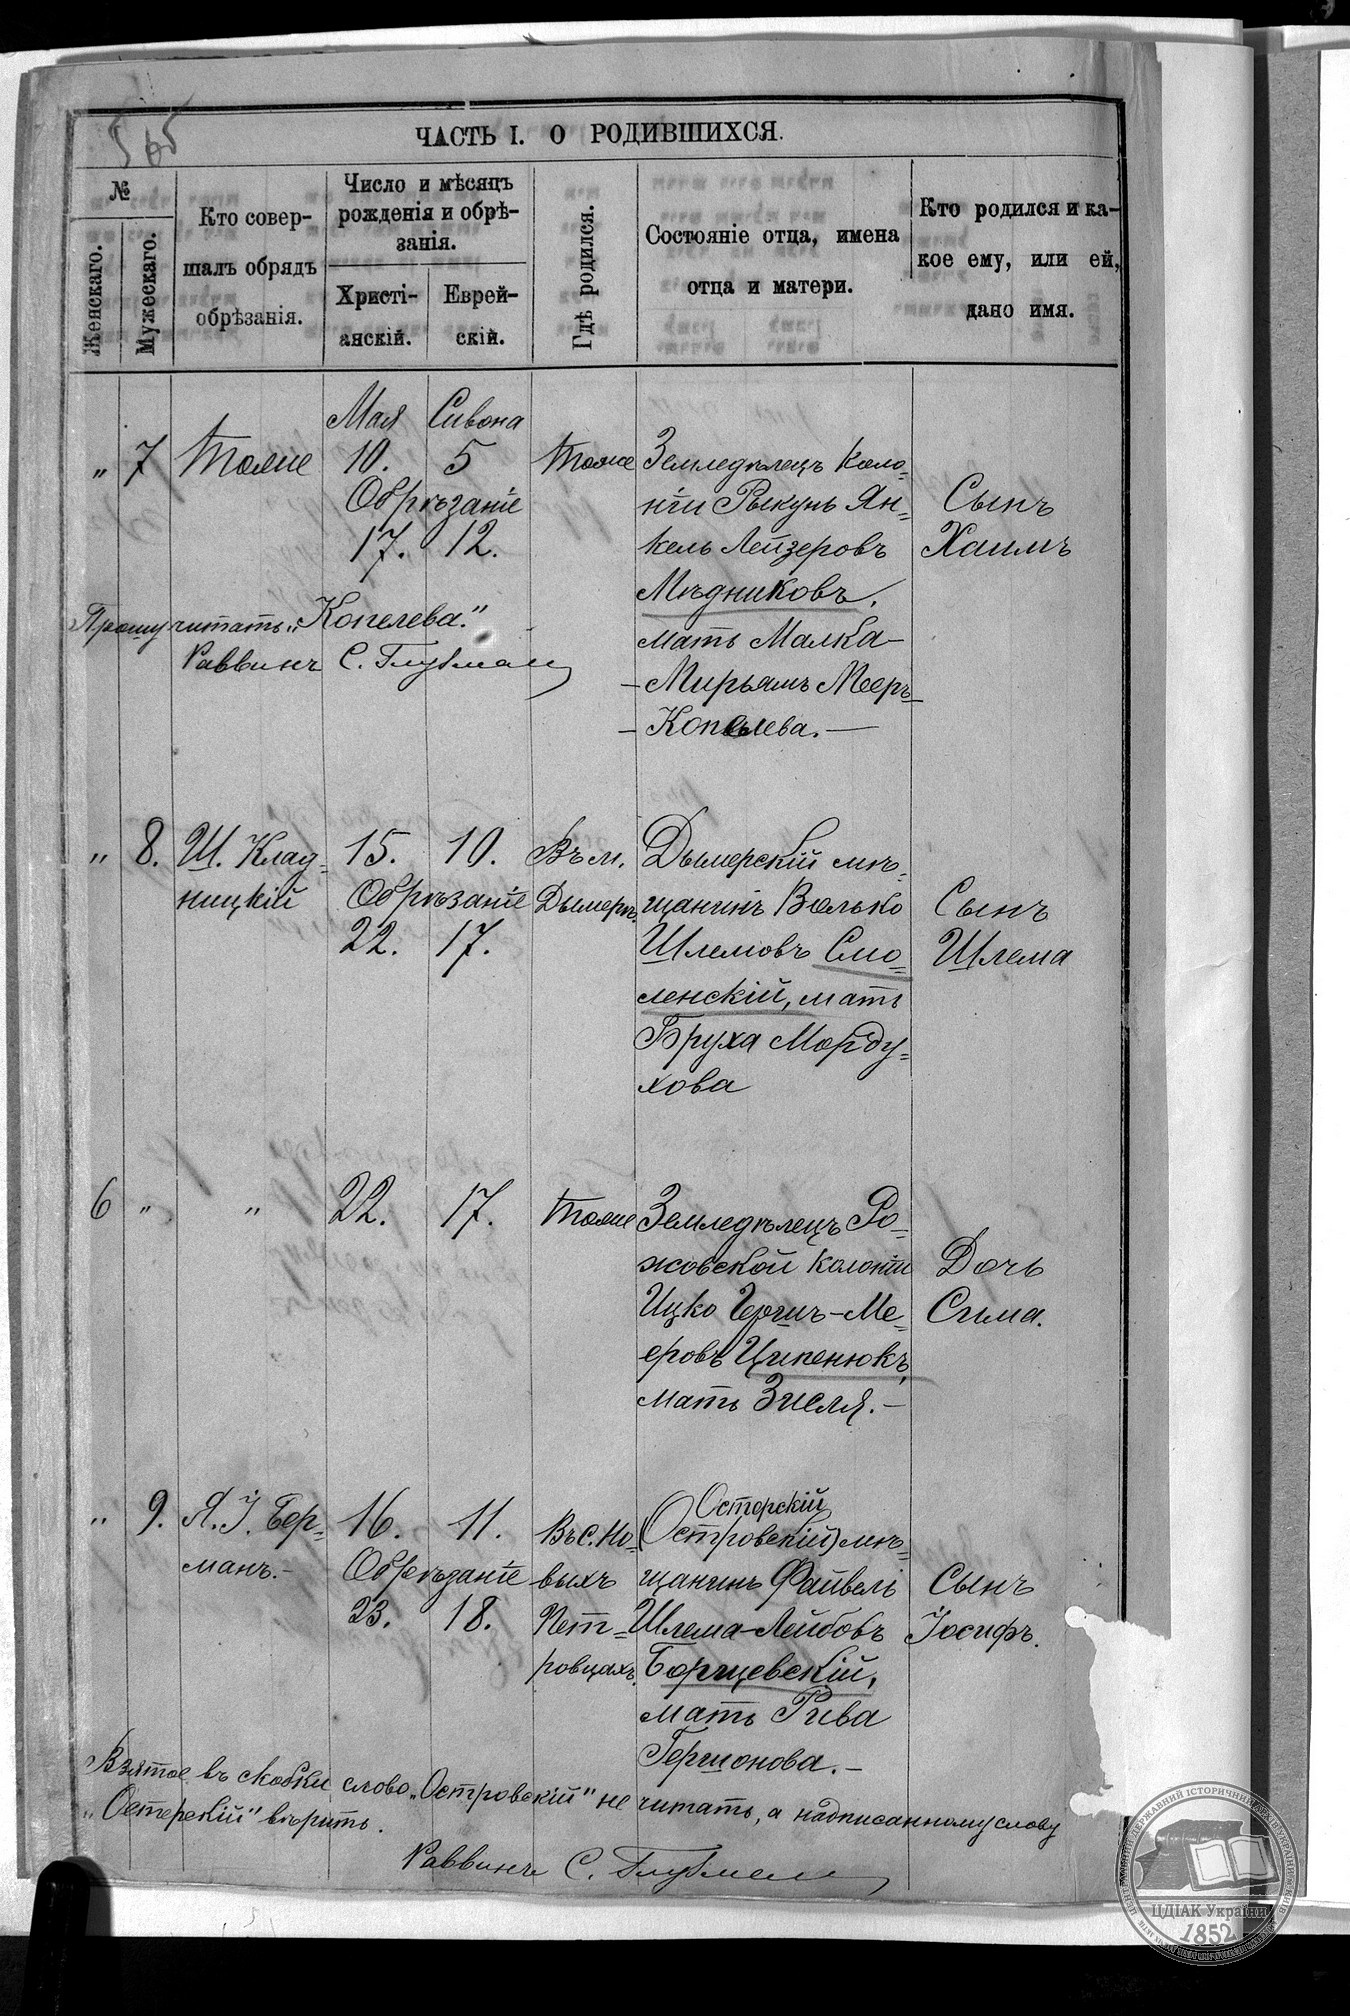 565
ЧАСТЬ I. О РОДИВШИХСЯ.
№
Женскаго.
Мужескаго.
Кто совер-
шалъ обрядъ
обрѣзанія.
Число и мѣсяцъ
рожденія и обрѣ-
занія.
Христі-
анскій.
Еврей-
скій.
Гдѣ родился.
Состояніе отца, имена
отца и матери.
Кто родился и ка-
кое ему, или ей,
дано имя.
Мая Сивона
" 7 Тоже 10. 5 Тоже
Обрѣзаніе
17. 12.
Земледѣлецъ коло-
ніи Рыкунь Ян-
кель Лейзеровъ
Мѣдниковъ,
мать Малка-
-Мирьямъ Мееръ-
-Копелева.-
Сынъ
Хаимъ
Прошу читать „Копелева."
Раввинъ С. Глузман
" 8. Ш. Клад-
ницкій
15. 10.
Обрѣзаніе
22. 17.
Въ м.
Дымеръ.
Дымерскій мѣ-
щанинъ Волько
Шлемовъ Смо-
ленскій, мать
Бруха Морду-
хова
Сынъ
Шлема
6 " " 22. 17. Тоже
Земледѣлецъ Ро-
жовской колоніи
Ицко Гершъ-Ме-
еровъ Ципенюкъ,
мать Зисля.-
Дочь
Сима.
" 9. Я. І. Бер-
манъ.-
16. 11.
Обрѣзаніе
23. 18.
Въ с. Но-
выхъ
Пет-
ровцахъ.
Остерскій
(Островскій) мѣ-
щанинъ Файвель
Шлема-Лейбовъ
Борщевскій,
мать Рива
Гершонова.-
Сынъ
Іосифъ.
Взятое въ скобки слово „Островскій" не читать, а надписанному слову
„Остерскій" вѣрить.
Раввинъ С. Глузман
ЦДІАК України
1852